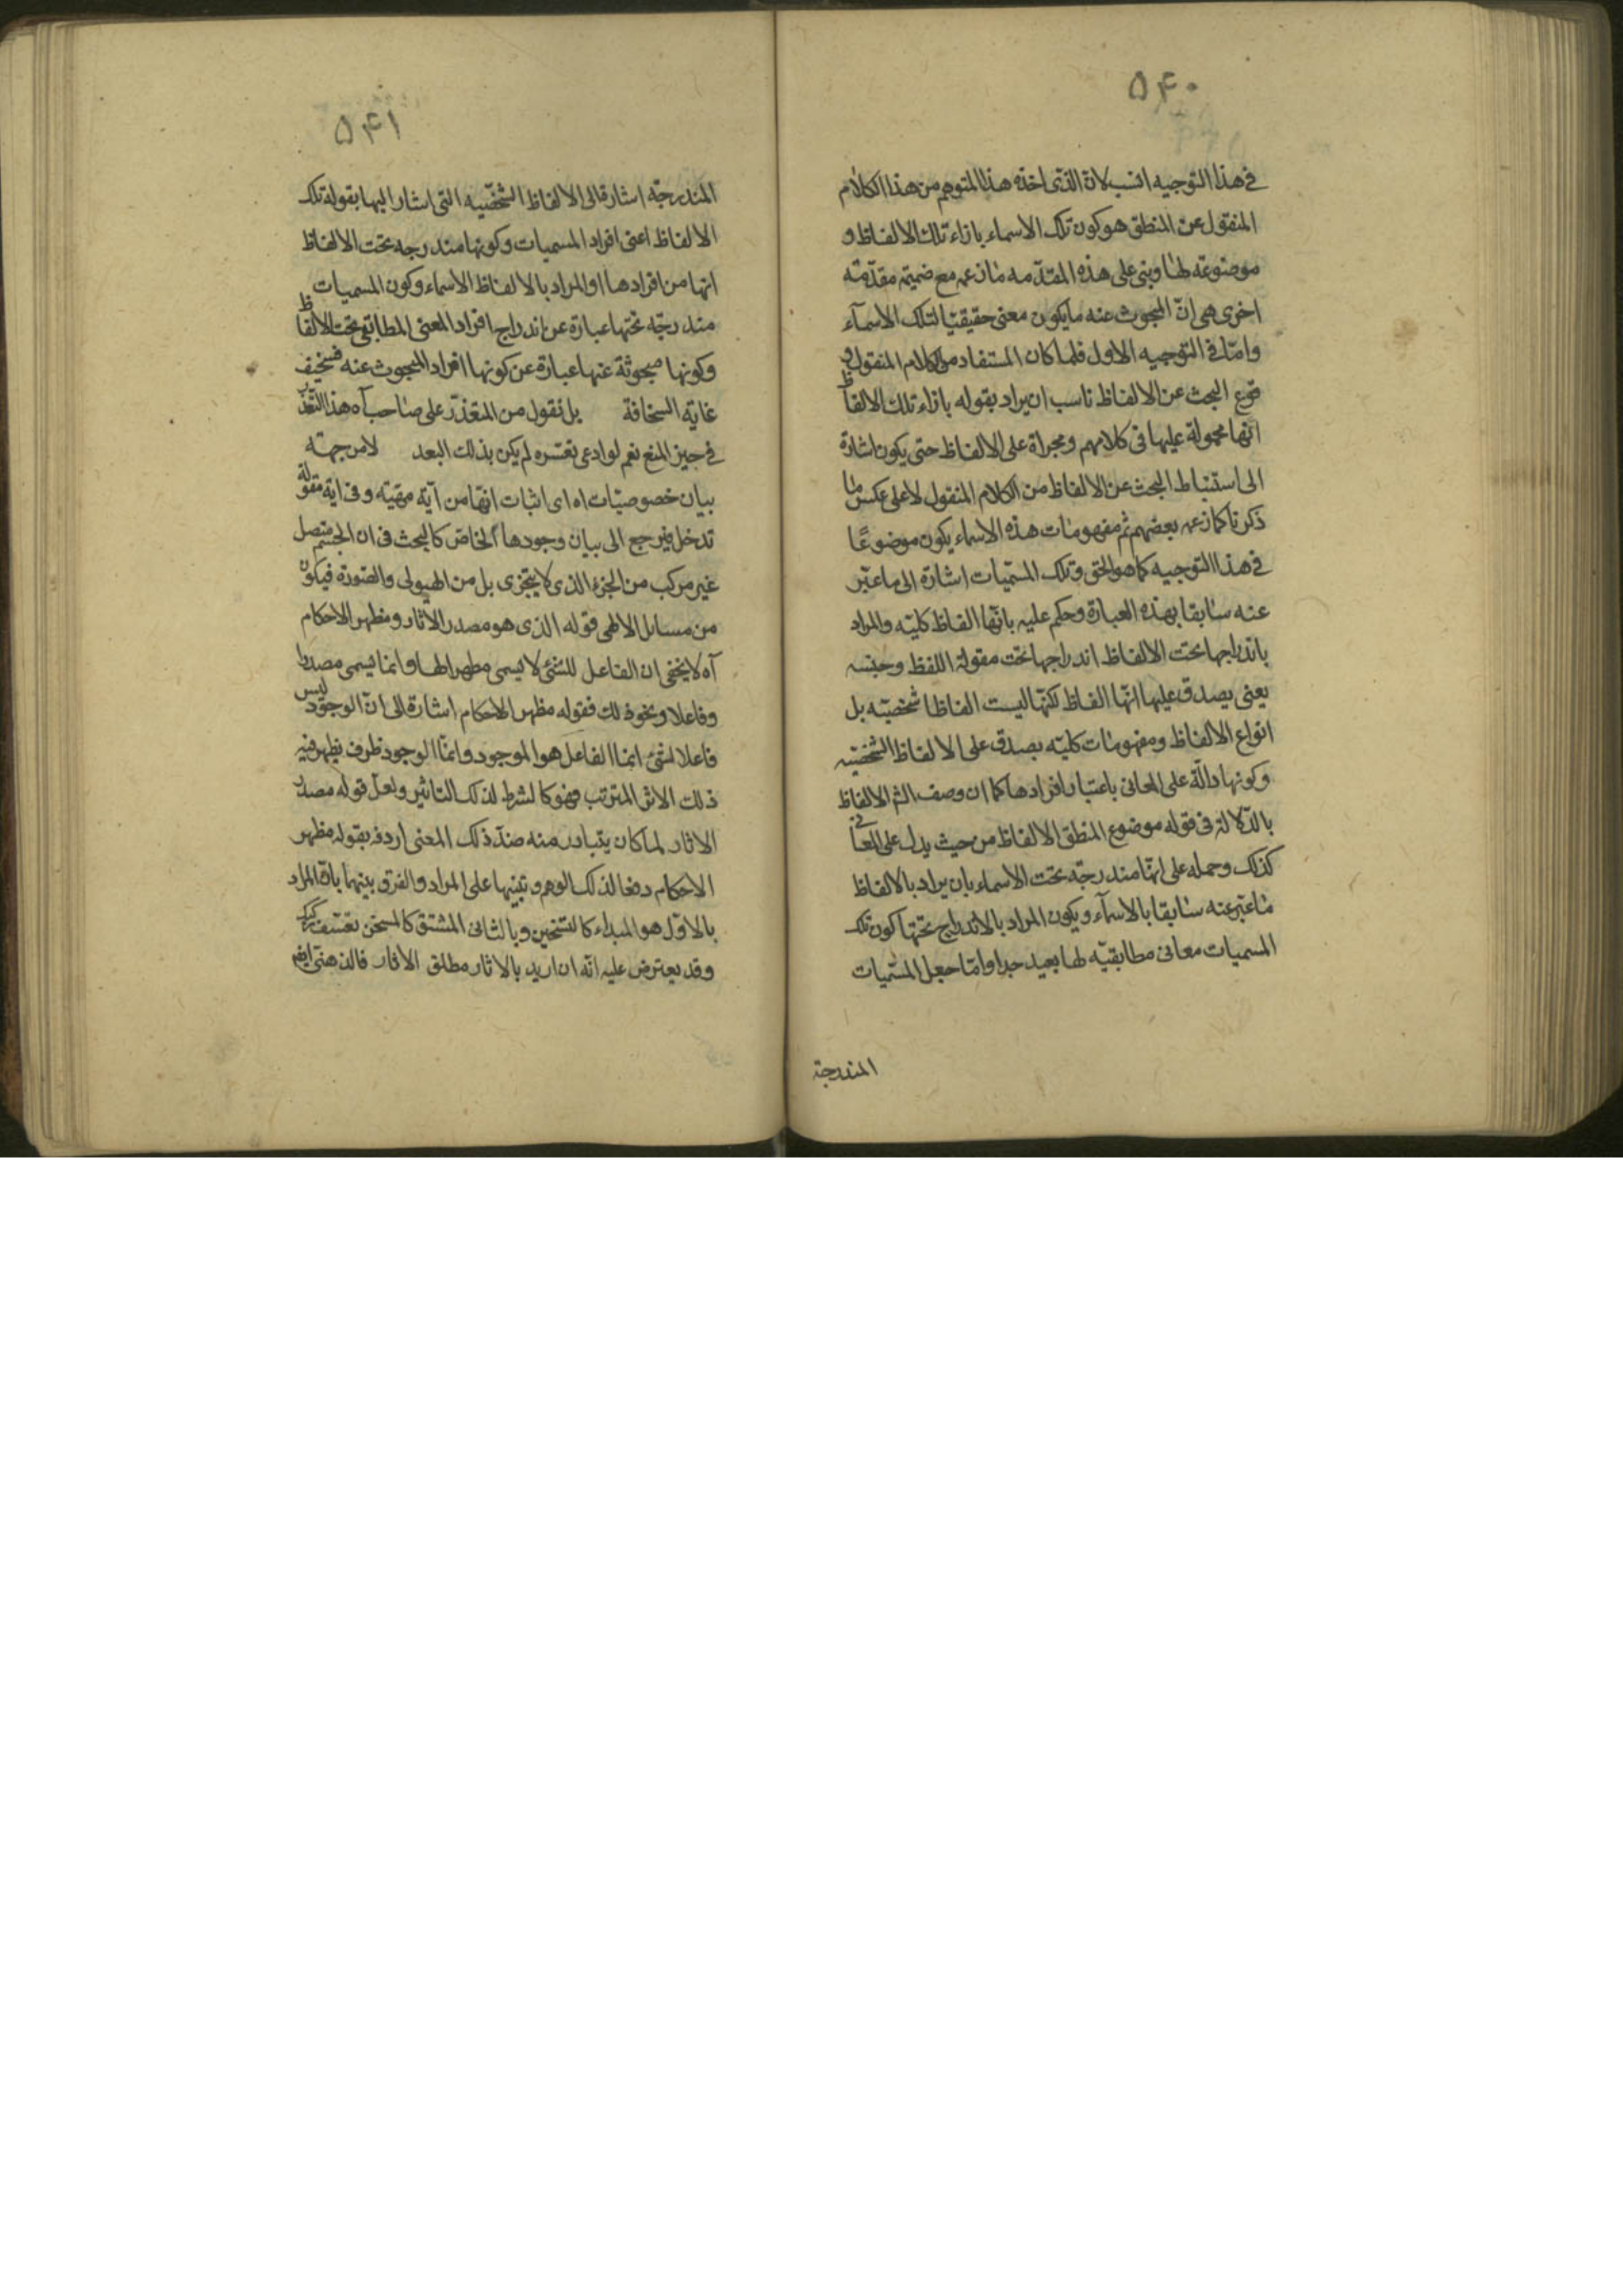 ۵۴۰
في هذا التوجيه انسب لان الذي اخذه هذا المتوهم من هذا الكلام
المنقول عن المنطق هو كون تلك الاسماء بازاء تلك الالفاظ و
موضوعة لها وبنى على هذه المقدمه ما زعمه مع ضميمة مقدمة
اخرى هي ان المبحوث عنه ما يكون معنى حقيقيا لتلك الاسمآء
واما في التوجيه الاول فلما كان المستفاد من الكلام المنقول و
قوع البحث عن الالفاظ ناسب ان يراد بقوله بازاء تلك الالفاظ
انها محمولة عليها في كلامهم ومجراة على الالفاظ حتى يكون اشارة
الى استنباط البحث عن الالفاظ من الكلام المنقول لا على عكس ما
ذكرنا كما زعمه بعضهم ثم مفهومات هذه الاسماء يكون موضوعًا
في هذا التوجيه كما هو الحق وتلك المسميات اشارة الى ما عبّر
عنه سابقا بهذه العبارة وحكم عليه بانها الفاظ كلية والمراد
باندراجها تحت الالفاظ اندراجها تحت مقولة اللفظ وجنسه
يعنى يصدق عليها انها الفاظ لكنها ليست الفاظا شخصيّه بل
انواع الالفاظ ومفهومات كليّه يصدق على الالفاظ الشخصيّه
وكونها دالّة على المعانى باعتبار افرادها كما ان وصف الالفاظ
بالدّلالة فى قوله موضوع المنطق الالفاظ من حيث يدل على المعانى
كذلك وحمله على انها مندرجة تحت الاسماء بان يراد بالالفاظ
ما عبّر عنه سابقا بالاسمآء ويكون المراد بالاندراج تحتها كون تلك
المسميات معانى مطابقيّه لها بعيد جدا واما جعل المسّميات
المندرجة
۵۴۱
المندرجّه اشارة الى الالفاظ الشخصّيه التى اشار اليها بقوله تلك
الالفاظ اعنى افراد المسميات وكونها مندرجه تحت الالفاظ
انها من افرادها او المراد بالالفاظ الاسماء وكون المسميات
مندرجّه تحتها عبارة عن اندراج افراد المعنى المطابقى تحت الالفاظ
وكونها مبحوثة عنها عبارة عن كونها افراد المبحوث عنه فسخيف
غاية السخافة بل نقول من المتعذر على صاحب آه هذا التعذّر
في حيز المنع نعم لو ادعى تعسره لم يكن بذلك البعد لا من جهة
بيان خصوصيّات اه اى اثبات انها من آية مهيّة وفى اية مقولة
تدخل فيرجع الى بيان وجودها الخاصّ كالبحث فى ان الجسم متصل
غير مركب من الجزء الذى لا يتجزى بل من الهيولى والصورة فيكون
من مسايل الالهى قوله الذى هو مصدر الاثار ومظهر الاحكام
آه لا يخفى ان الفاعل للشئ لا يسمى مظهرا لها وانما يسمى مصدرا
وفاعلا ونحو ذلك فقوله مظهر الاحكام اشارة الى انّ الوجود ليس
فاعلا لشئ انما الفاعل هو الموجود وانما الوجود ظرف يظهر فيه
ذلك الاثر المترتب فهو كالشرط لذلك التاثير ولعلّ قوله مصدر
الاثار لما كان يتبادر منه ضدّ ذلك المعنى اردفه بقوله مظهر
الاحكام دفعا لذلك الوهم وتنبيها على المراد والفرق بينهما بان المراد
بالاوّل هو المبداء كالتسخين وبالثانى المشتق كالمسخن تعسّف ركيك
وقد يعترض عليه انّه ان اريد بالاثار مطلق الاثار فالذهنى ايضم